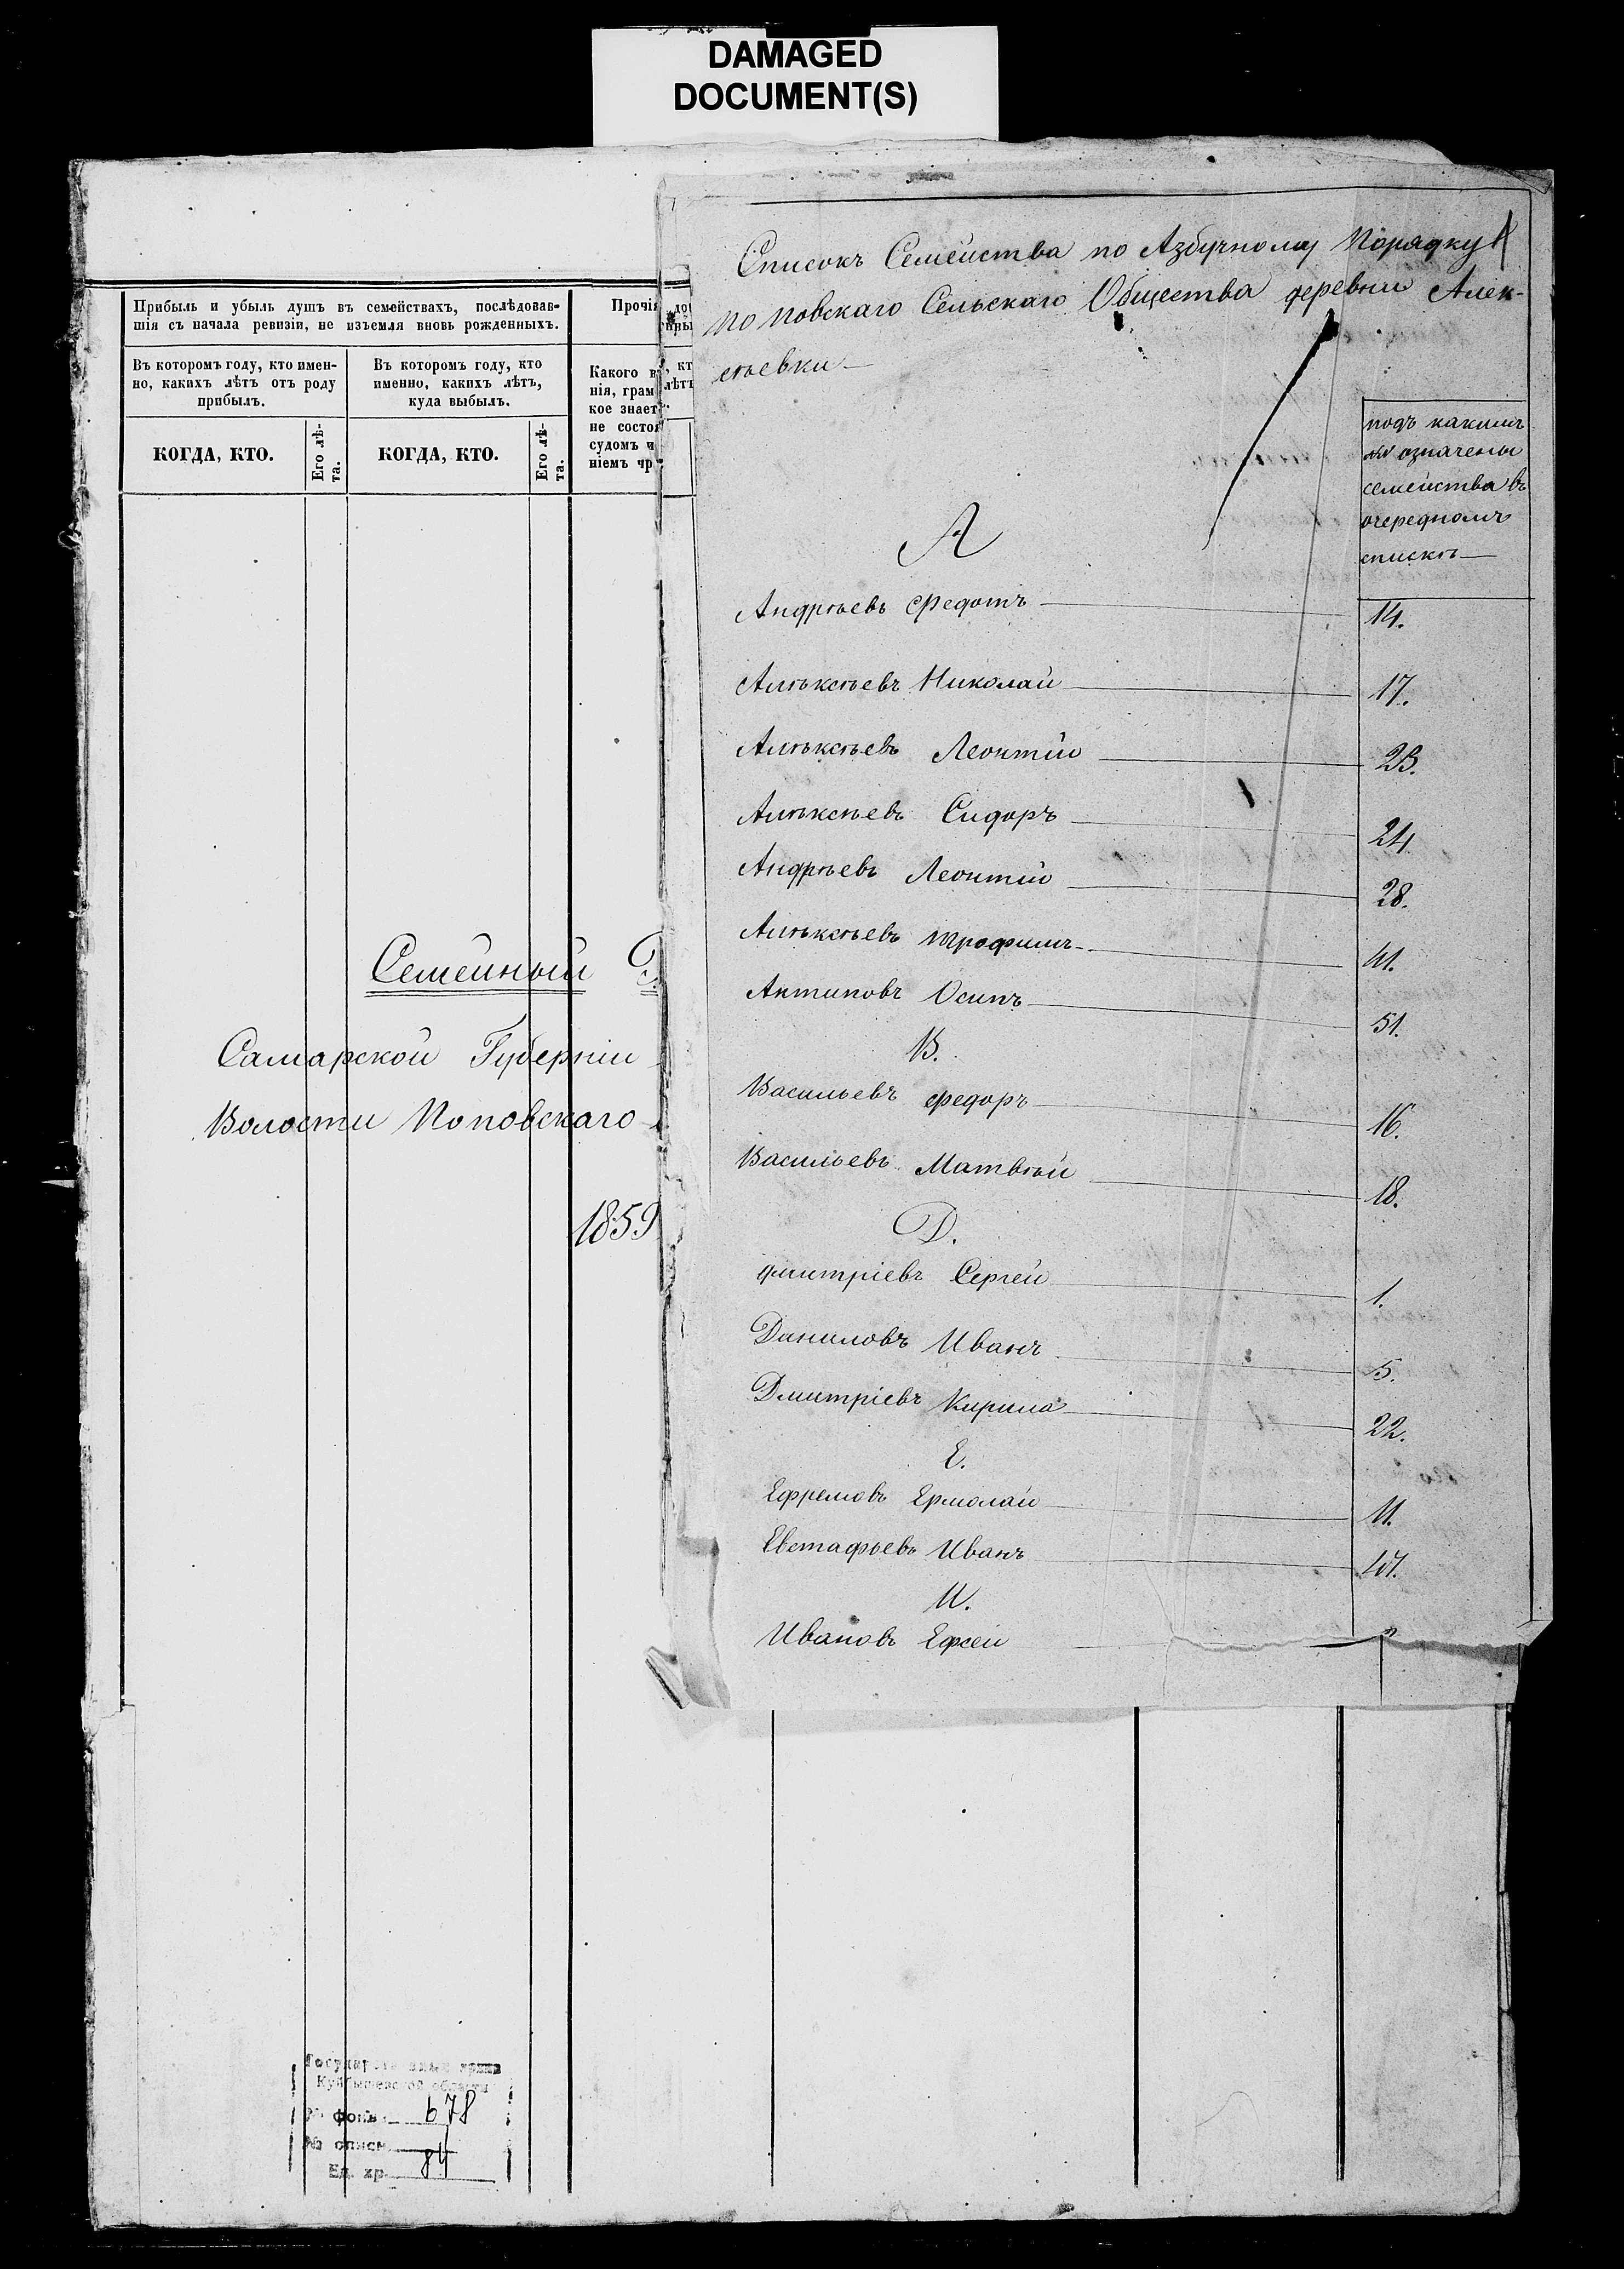 DAMAGED
DOCUMENT(S)
Прибыль и убыль душъ въ семействахъ, послѣдовав-
шія съ начала ревизіи, не изъемля вновь рожденныхъ.
Въ которомъ году, кто имен-
но, какихъ лѣтъ отъ роду
прибылъ.
Въ которомъ году, кто
именно, какихъ лѣтъ,
куда выбылъ.
КОГДА, КТО.
Его лѣ-
та.
КОГДА, КТО.
Его лѣ-
та.
Прочія
Какого в
нія, грам
кое знает
не состоя
судомъ
ніемъ
Семейный
Самарской Губерніи
Волости Поповскаго
1859
Списокъ Семейства по Азбучному Порядку
Поповскаго Сельскаго Общества деревни Алек-
сѣевки
подъ какимъ
№№ означены
семейства въ
очередномъ
спискѣ
А
Андрѣевъ Федотъ 14.
Алѣксѣевъ Николай 17.
Алѣксѣевъ Леонтій 23.
Алѣксѣевъ Сидоръ 24
Андрѣевъ Леонтій 28.
Алѣксѣевъ Трофимъ 41.
Антиповъ Осипъ 51.
В.
Васильевъ Федоръ 16.
Васильевъ Матвѣй 18.
Д.
Дмитріевъ Сергей 1.
Даниловъ Иванъ 5.
Дмитріевъ Кирила 22.
Е.
Ефремовъ Ермолай 11.
Евстафьевъ Иванъ
И.
Ивановъ Ефсей
Куйбышевской области
№ фонд 678
№ описи
Ед. хр. 84